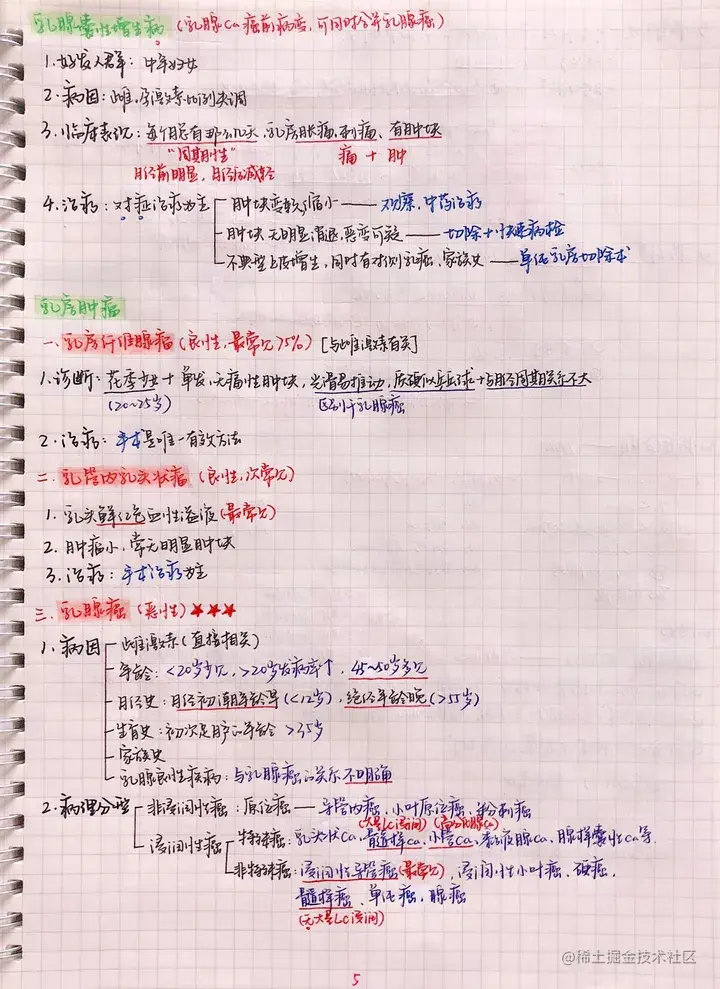 乳腺囊性增生病 (乳腺Ca癌前病变,可同时合并乳腺癌)
1.好发人群: 中年妇女
2.病因: 雌,孕激素比例失调
3.临床表现: 每个月总有那么几天,乳房胀痛,刺痛、有肿块
"周期性" 痛+肿
月经前明显,月经后减轻
4.治疗: 对症治疗为主 肿块变软/缩小——观察,中药治疗
肿块无明显消退,恶变可疑——切除+快速病检
不典型上皮增生,同时有对侧乳癌、家族史——单纯乳房切除术
乳房肿瘤
一、乳房纤维腺瘤 (良性,最常见75%) [与雌激素有关]
1.诊断: 花季少女+单发,无痛性肿块,光滑易推动,质硬似乒乓球+与月经周期关系不大
(20~25岁) 区别于乳腺癌
2.治疗: 手术是唯一有效方法
二.乳管内乳头状瘤 (良性,次常见)
1.乳头鲜红色血性溢液(最常见)
2.肿瘤小,常无明显肿块
3.治疗: 手术治疗为主
三.乳腺癌 (恶性)★★★
1.病因 雌激素(直接相关)
年龄: <20岁少见,>20岁发病率↑,45~50岁多见
月经史: 月经初潮年龄早(<12岁),绝经年龄晚(>55岁)
生育史: 初次足月产的年龄>35岁
家族史
乳腺良性疾病: 与乳腺癌的关系不明确
2.病理分型 非浸润性癌: 原位癌——导管内癌,小叶原位癌、粉刺癌
(大量LC浸润) (高分化腺Ca)
浸润性癌 特殊癌: 乳头状Ca、髓样Ca、小管Ca、黏液腺Ca、腺样囊性Ca等
非特殊癌: 浸润性导管癌(最常见),浸润性小叶癌、硬癌,
髓样癌、单纯癌,腺癌
(无大量LC浸润)
@稀土掘金技术社区
5